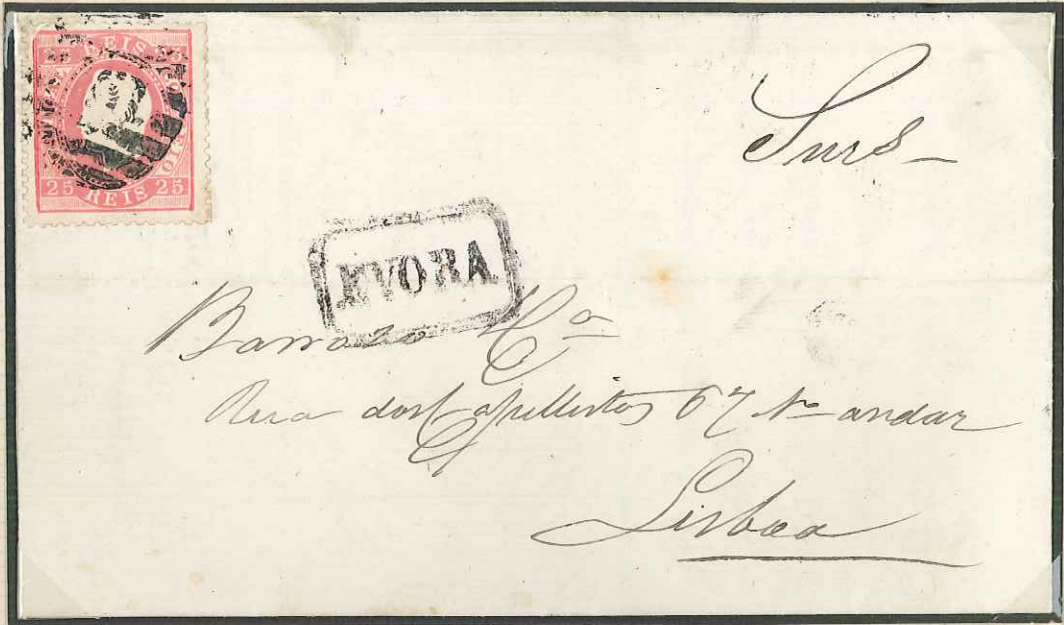 REIS
CORREIO
25 REIS 25
Snrs
EVORA
Barrozo & Ca
Rua dos Capellistas 67 1º andar
Lisboa